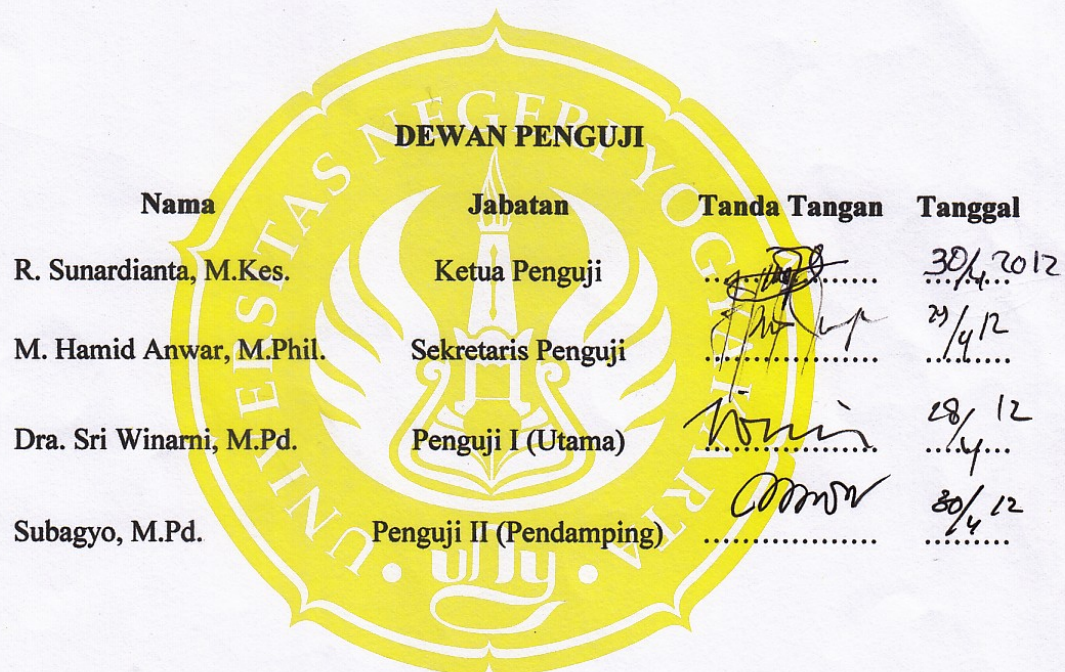 UNIVERSITAS NEGERI YOGYAKARTA
DEWAN PENGUJI
Nama Jabatan Tanda Tangan Tanggal
R. Sunardianta, M.Kes. Ketua Penguji .................. 30/4 2012
M. Hamid Anwar, M.Phil. Sekretaris Penguji .................. 29/4 12
Dra. Sri Winarni, M.Pd. Penguji I (Utama) .................. 28/4 12
Subagyo, M.Pd. Penguji II (Pendamping) .................. 30/4 12
uny